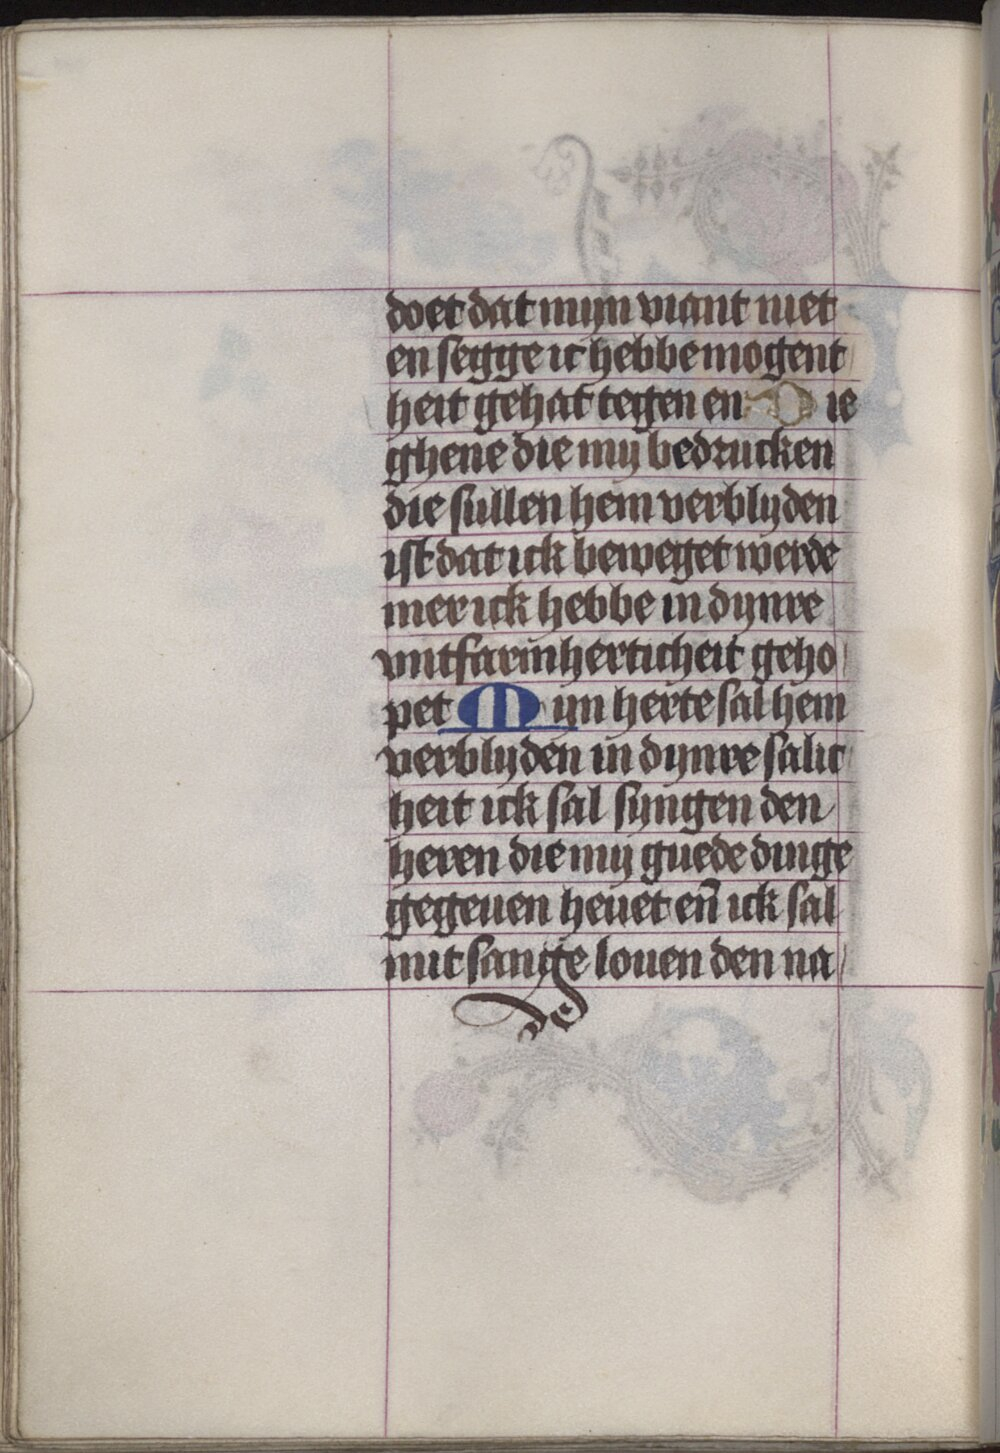 doet dat mijn viant niet
en segge ic hebbe mogent
heit gehat tegen en Die
ghene die mij bedrucken
die sullen hem verblijden
ist dat ick beweget werde
mer ick hebbe in dijnre
untfarmherticheit geho
pet Mijn herte sal hem
verblijden in dijnre salic
heit ick sal syngen den
heren die mij guede dinge
gegeuen heuet en̄ ick sal
mit sange louen den na